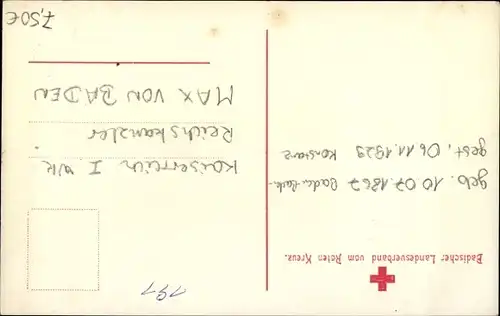 Badischer Landesverband vom Roten Kreuz.
geb. 10.07.1867 Baden-Bad.
gest. 06.11.1929 Konstanz
191
Kaiserreich I. WK
Reichskanzler
MAX VON BADEN
7,50€